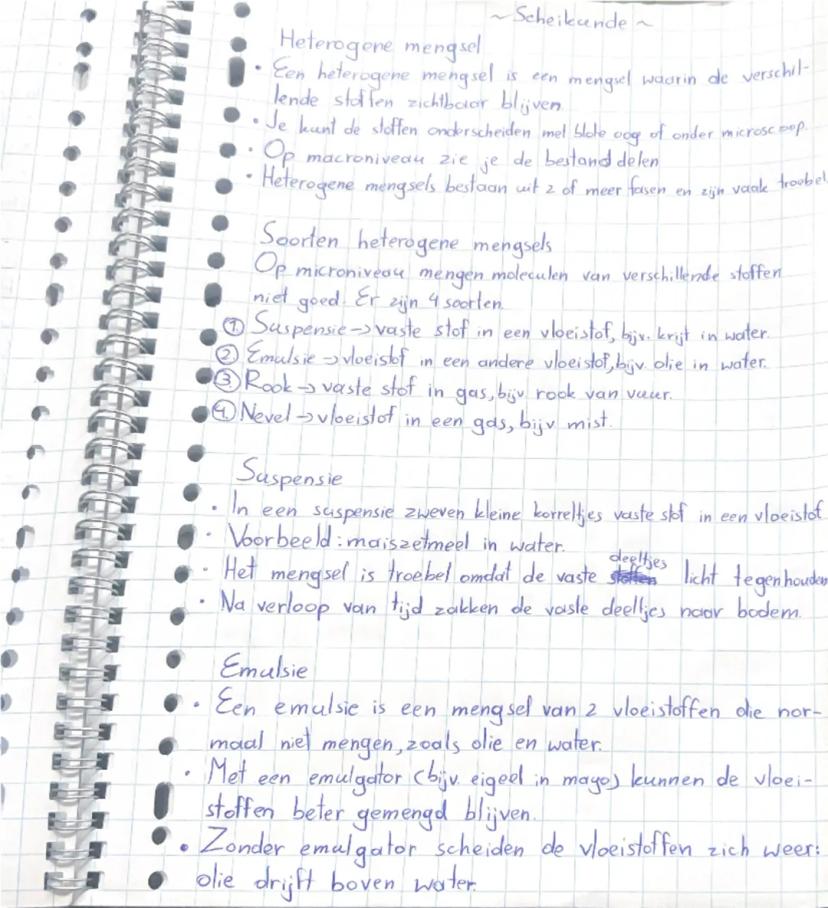 ~ Scheikunde ~
Heterogene mengsel
• Een heterogene mengsel is een mengsel waarin de verschil-
lende stoffen zichtbaar blijven
• Je kunt de stoffen onderscheiden met blote oog of onder microscoop.
• Op macroniveau zie je de bestanddelen
• Heterogene mengsels bestaan uit 2 of meer fasen en zijn vaak troebel
Soorten heterogene mengsels
Op microniveau mengen moleculen van verschillende stoffen
niet goed. Er zijn 4 soorten.
① Suspensie → vaste stof in een vloeistof, bijv. krijt in water.
② Emulsie → vloeistof in een andere vloeistof, bijv. olie in water.
③ Rook → vaste stof in gas, bijv rook van vuur.
④ Nevel → vloeistof in een gas, bijv mist.
Suspensie
• In een suspensie zweven kleine korreltjes vaste stof in een vloeistof
• Voorbeeld: maiszetmeel in water.
• Het mengsel is troebel omdat de vaste deeltjes licht tegenhouden
• Na verloop van tijd zakken de vaste deeltjes naar bodem.
Emulsie
• Een emulsie is een mengsel van 2 vloeistoffen die nor-
maal niet mengen, zoals olie en water.
• Met een emulgator (bijv. eigeel in mayo) kunnen de vloei-
stoffen beter gemengd blijven.
• Zonder emulgator scheiden de vloeistoffen zich weer:
olie drijft boven water.